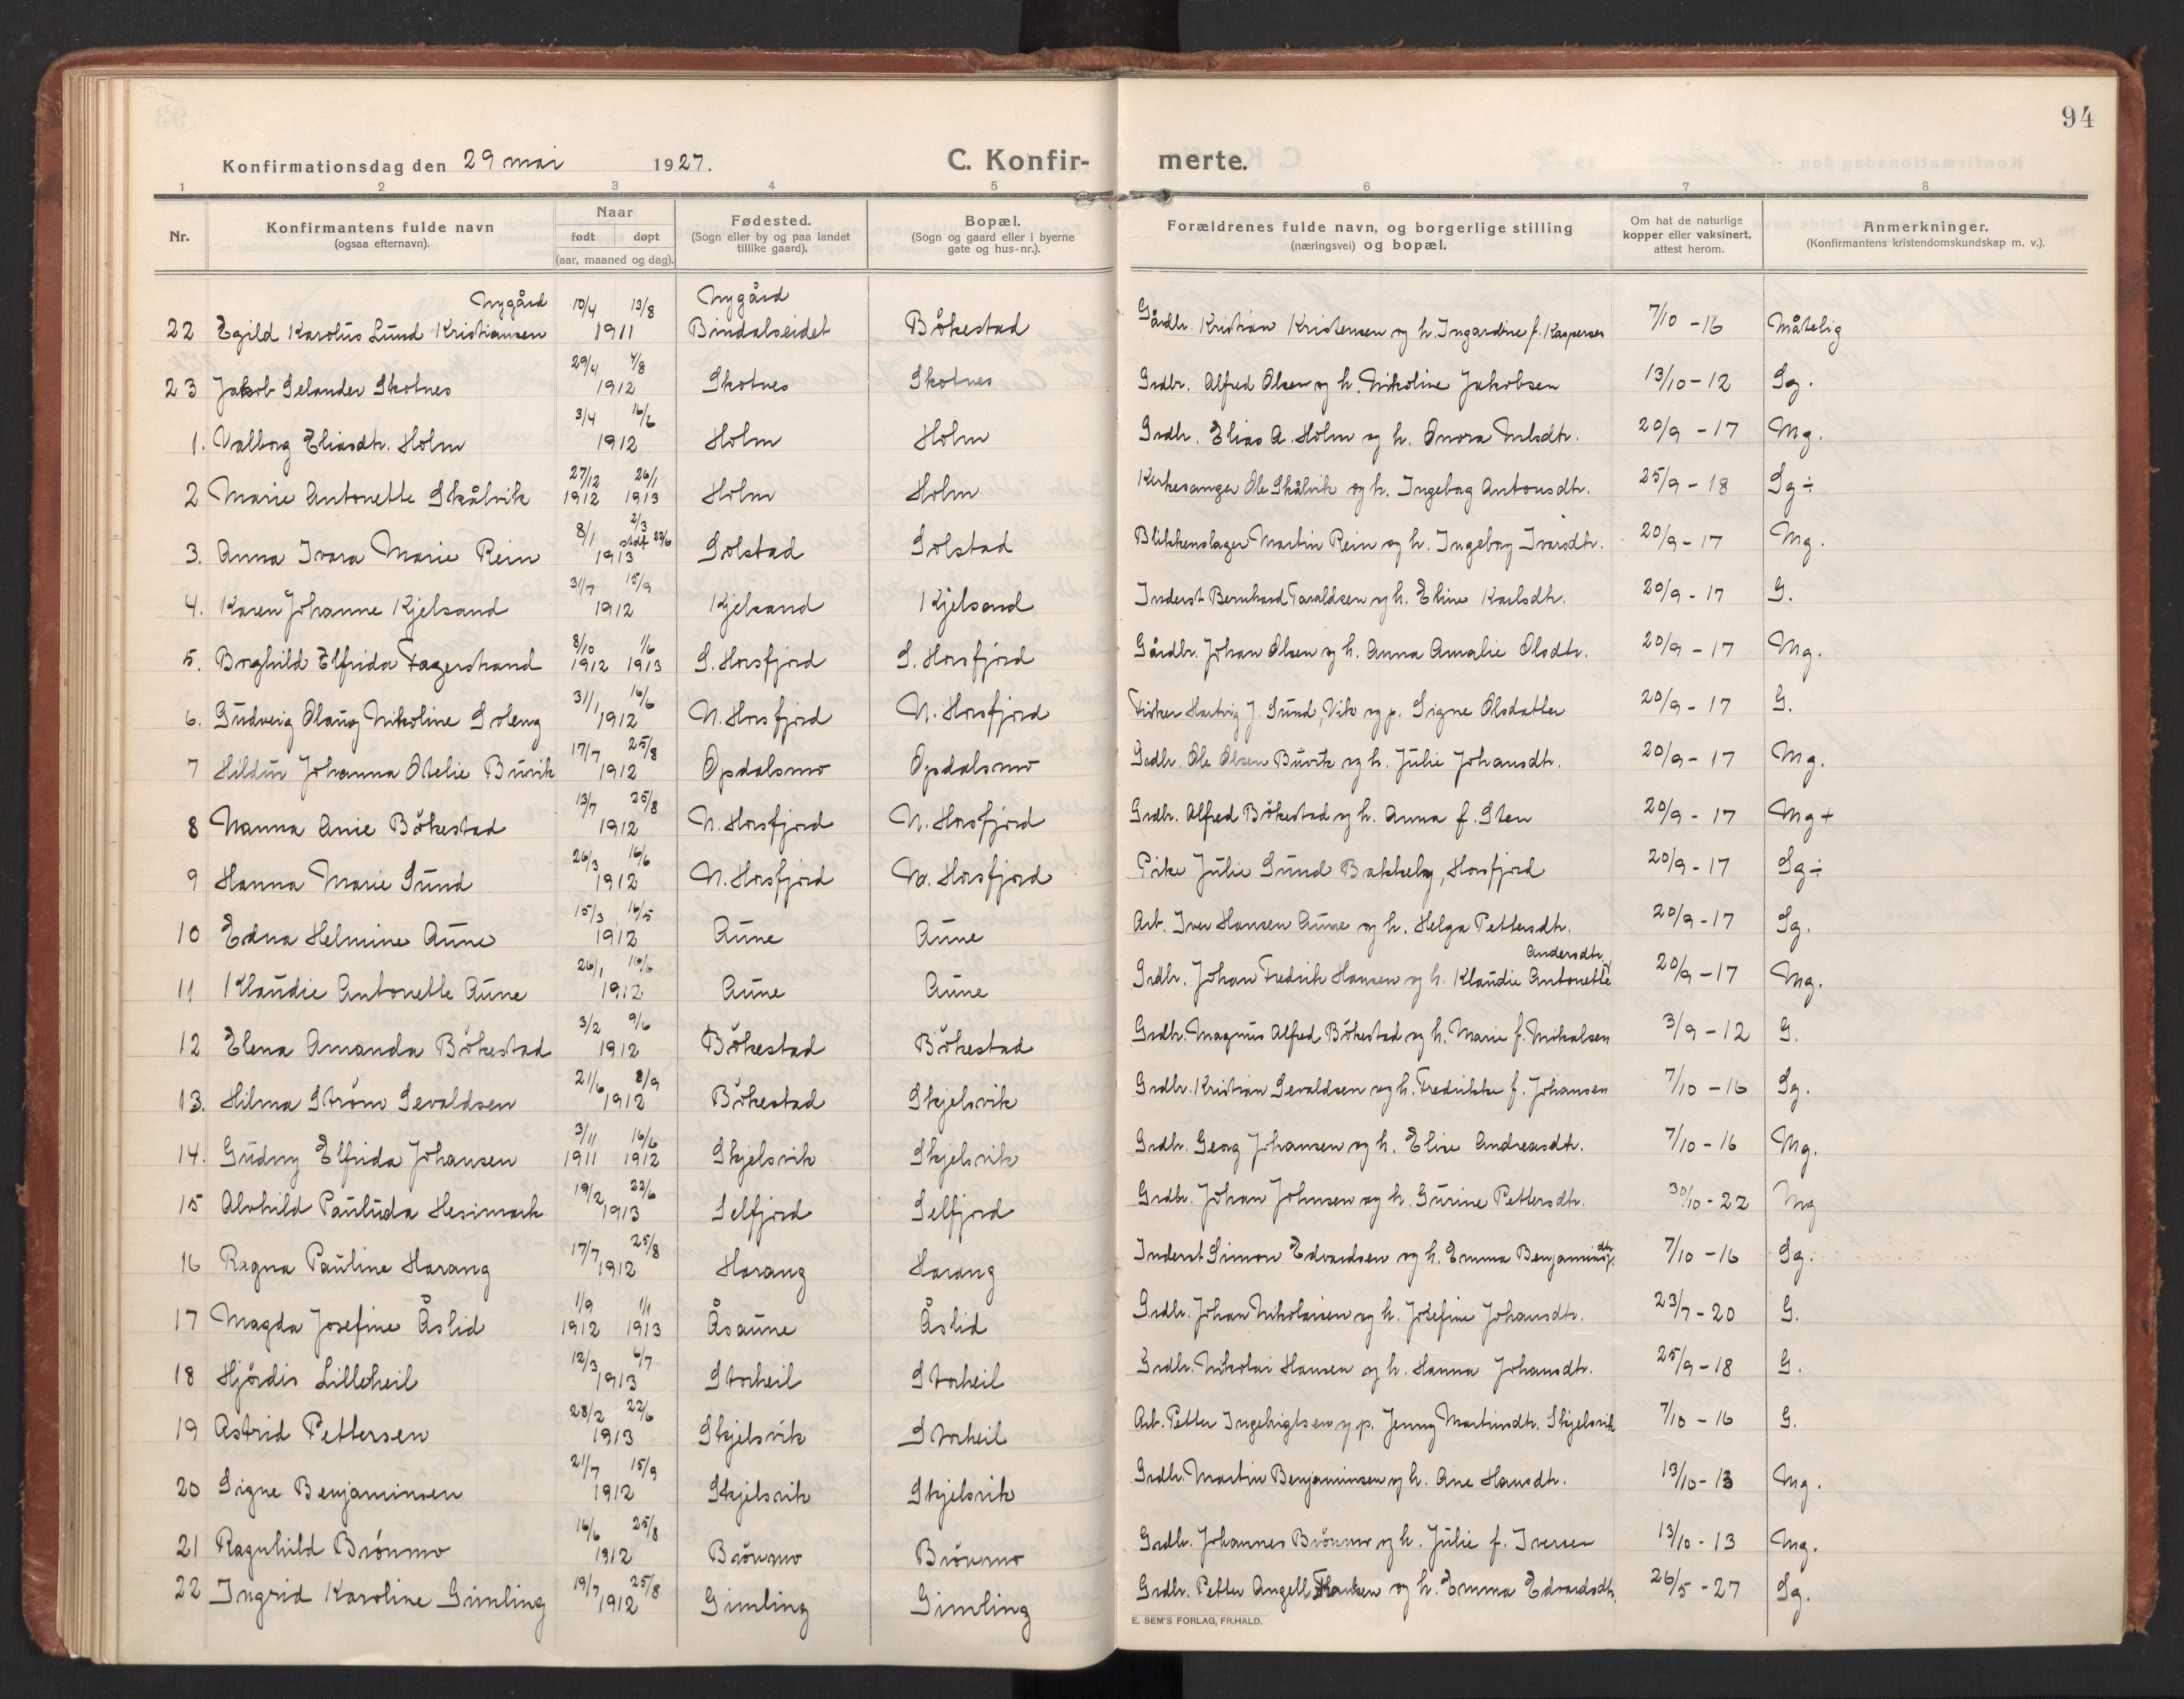 94
Konfirmationsdag den 29 mai 1927. C. Konfir- merte.
1 2 3 4 5 6 7 8
Nr. Konfirmantens fulde navn (ogsaa efternavn). Naar født døpt (aar, maaned og dag). Fødested. (Sogn eller by og paa landet tillike gaard). Bopæl. (Sogn og gaard eller i byerne gate og hus-nr.). Forældrenes fulde navn, og borgerlige stilling (næringsvei) og bopæl. Om hat de naturlige kopper eller vaksinert, attest herom. Anmerkninger. (Konfirmantens kristendomskundskap m. v.).
Nygård 10/4 13/8 Nygård
22 Egild Karolus Lund Kristiansen 1911 Bindalseidet Bökestad Gårdbr. Kristian Kristensen og h. Ingardine f. Kaspersen 7/10 - 16 Måtelig
23 Jakob Selander Skotnes 29/4 4/8 1912 Skotnes Skotnes Grdbr. Alfred Olsen og h. Nikoline Jakobsen 13/10 - 12 Sg.
1. Valborg Eliasdtr. Holm 3/4 16/6 1912 Holm Holm Grdbr. Elias A. Holm og h. Anora Nilsdtr. 20/9 - 17 Mg.
2 Marie Antonette Skålvik 27/12 1912 26/1 1913 Holm Holm Kirkesanger Ole Skålvik og h. Ingeborg Antonsdtr. 25/9 - 18 Sg ÷
3. Anna Ivara Marie Rein 8/1 2/3 stdf 22/6 1913 Solstad Solstad Blikkenslager Martin Rein og h. Ingeborg Ivarsdtr. 20/9 - 17 Mg.
4. Karen Johanne Kjelsand 31/7 15/9 1912 Kjelsand Kjelsand Inderst Bernhard Taraldsen og h. Eline Karlsdtr. 20/9 - 17 G.
5. Borghild Elfrida Fagerstrand 8/10 1912 1/6 1913 S. Horsfjord S. Horsfjord Gårdbr. Johan Olsen og h. Anna Amalie Olsdtr. 20/9 - 17 Mg.
6. Gudveig Olaug Nikoline Soleng 31/1 16/6 1912 N. Horsfjord N. Horsfjord Fisker Hartvig J. Sund, Vik og p. Signe Olsdatter 20/9 - 17 G.
7 Hildur Johanna Otelie Buvik 17/7 25/8 1912 Opdalsmo Opdalsmo Grdbr. Ole Olsen Buvik og h. Julie Johansdtr. 20/9 - 17 Mg.
8 Nanna Anie Bökestad 13/7 25/8 1912 N. Horsfjord N. Horsfjord Grdbr. Alfred Bökestad og h. Anna f. Sten 20/9 - 17 Mg +
9 Hanna Marie Sund 26/3 16/6 1912 N. Horsfjord N. Horsfjord Pike Julie Sund Bakkeby, Horsfjord 20/9 - 17 Sg ÷
10 Edna Helmine Aune 15/3 16/5 1912 Aune Aune Arb. Iver Hansen Aune og h. Helga Pettersdtr. 20/9 - 17 Sg.
11 Klaudie Antonette Aune 26/1 16/6 1912 Aune Aune Grdbr. Johan Fredrik Hansen og h. Klaudie Antonette Andersdtr. 20/9 - 17 Mg.
12 Elena Amanda Bökestad 3/2 9/6 1912 Bökestad Bökestad Grdbr. Magnus Alfred Bökestad og h. Marie f. Mikalsen 3/9 - 12 G.
13. Hilma Strøm Sevaldsen 21/6 8/9 1912 Bökestad Skjelsvik Grdbr. Kristian Sevaldsen og h. Fredrikke f. Johansen 7/10 - 16 Sg.
14. Gudny Elfrida Johansen 3/11 1911 16/6 1912 Skjelsvik Skjelsvik Grdbr. Georg Johansen og h. Elise Andreasdtr. 7/10 - 16 Mg.
15 Alvhild Paulida Hesimark 19/2 22/6 1913 Selfjord Selfjord Grdbr. Johan Johnsen og h. Gurine Pettersdtr. 30/10 - 22 Mg
16 Ragna Pauline Harang 17/7 25/8 1912 Harang Harang Inderst Simon Edvardsen og h. Emma Benjaminsdtr. 7/10 - 16 Sg.
17 Magda Josefine Åslid 1/9 1912 1/1 1913 Åsaune Åslid Grdbr. Johan Nikolaisen og h. Josefine Johansdtr. 23/7 - 20 G.
18 Hjördis Lilleheil 12/3 6/7 1913 Storheil Storheil Grdbr. Nikolai Hansen og h. Hanna Johansdtr. 25/9 - 18 G.
19 Astrid Pettersen 28/2 22/6 1913 Skjelsvik Storheil Arb. Petter Ingebrigtsen og p. Jenny Martinsdtr. Skjelsvik 7/10 - 16 G.
20 Signe Benjaminsen 21/7 15/9 1912 Skjelsvik Skjelsvik Grdbr. Martin Benjaminsen og h. Ane Hansdtr. 13/10 - 13 Mg.
21 Ragnhild Brönmo 16/6 25/8 1912 Brönmo Brönmo Grdbr. Johannes Brönmo og h. Julie f. Iversen 13/10 - 13 Mg.
22 Ingrid Karoline Gimling 19/7 25/8 1912 Gimling Gimling Grdbr. Petter Angell Hansen og h. Emma Edvardsdtr. 26/5 - 27 Sg.
E. SEM'S FORLAG, FR.HALD.